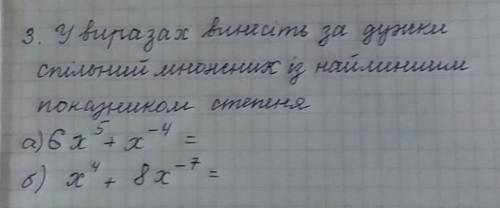 3. У виразах винесіть за дужки
спільний множник із найменшим
показником степеня
а) 6x⁵ + x⁻⁴ =
б) x⁴ + 8x⁻⁷ =